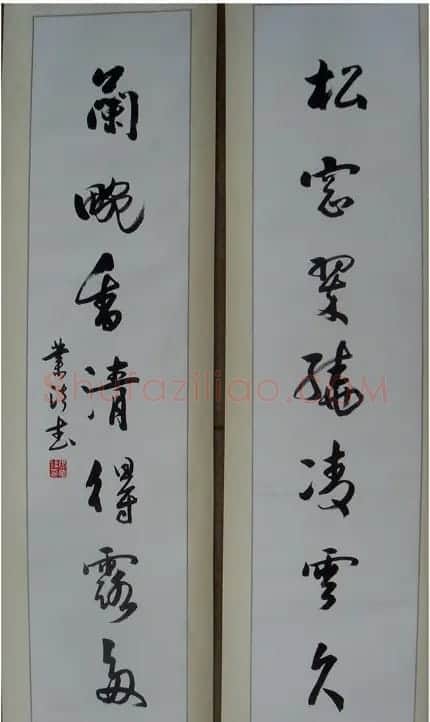 松窓翠繞凌雲久
蘭畹香清得露多
業清書
Shufaziliao.com